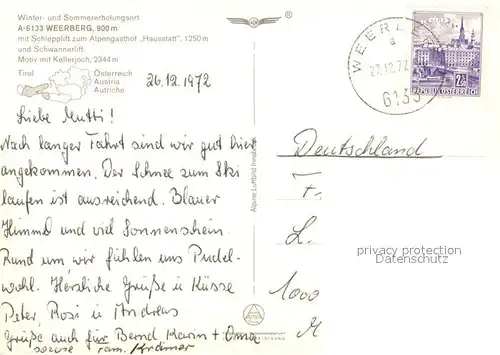 Winter- und Sommererholungsort
A-6133 WEERBERG, 900 m
mit Schlepplift zum Alpengasthof „Hausstatt“, 1250 m
und Schwannerlift
Motiv mit Kellerjoch, 2344 m
Tirol
Österreich
Austria
Autriche
26.12.1972
Liebe Mutti!
Nach langer Fahrt sind wir gut hier
angekommen. Der Schnee zum Ski
laufen ist ausreichend. Blauer
Himmel und viel Sonnenschein.
Rund um wir fühlen uns Pudel-
wohl. Herzliche Grüße u Küsse
Peter, Rosi u Andreas
Grüße auch für Bernd Karin + Oma
sowie Fam. Krämer
Alpine Luftbild Innsbruck
®
27.12.72
6133
2.50
REPUBLIK ÖSTERREICH
Deutschland
F.
L.
1000
privacy protection
Datenschutz